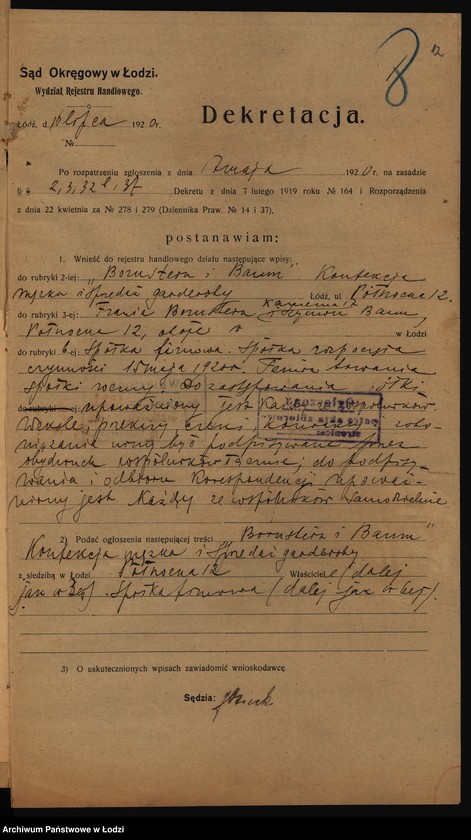 12
Sąd Okręgowy w Łodzi.
Wydział Rejestru Handlowego.
Łódź, d. 10 lipca 1920 r.
№
Dekretacja.
Po rozpatrzeniu zgłoszenia z dnia 17 maja 1920 r. na zasadzie
§ § 2, 3, 32 i 37 Dekretu z dnia 7 lutego 1919 roku № 164 i Rozporządzenia
z dnia 22 kwietnia za № 278 i 279 (Dziennika Praw. № 14 i 37),
postanawiam:
1. Wnieść do rejestru handlowego działu następujące wpisy:
do rubryki 2-iej: „Bornsztera i Baum" Konfekcja
męzka i sprzedaż garderoby Łódź, ul Północna 12.
do rubryki 3-iej: Frania Bornsztera i Szymon Baum,
Północna 12, w Łodzi
do rubryki 6-ej: Spółka firmowa. Spółka rozpoczęła
czynności 15 maja 1920 r. Termin trwania
spółki roczny. Do zastępowania spółki
do rubryki upoważniony jest każdy ze spólników
Weksle, przekazy, czeki, zobo-
wiązania winny być podpisywane przez
obydwuch wspólników łącznie; do podpisy-
wania i odbioru korespondencji upoważ-
niony jest każdy ze wspólników samodzielnie
2) Podać ogłoszenia następującej treści „Bornsztera i Baum"
Konfekcja męzka i sprzedaż garderoby
z siedzibą w Łodzi Północna 12 Właściciele (dalej
jak w 3ej). Spółka firmowa (dalej jak w 6ej).
3) O uskutecznionych wpisach zawiadomić wnioskodawcę
Sędzia:
Archiwum Państwowe w Łodzi